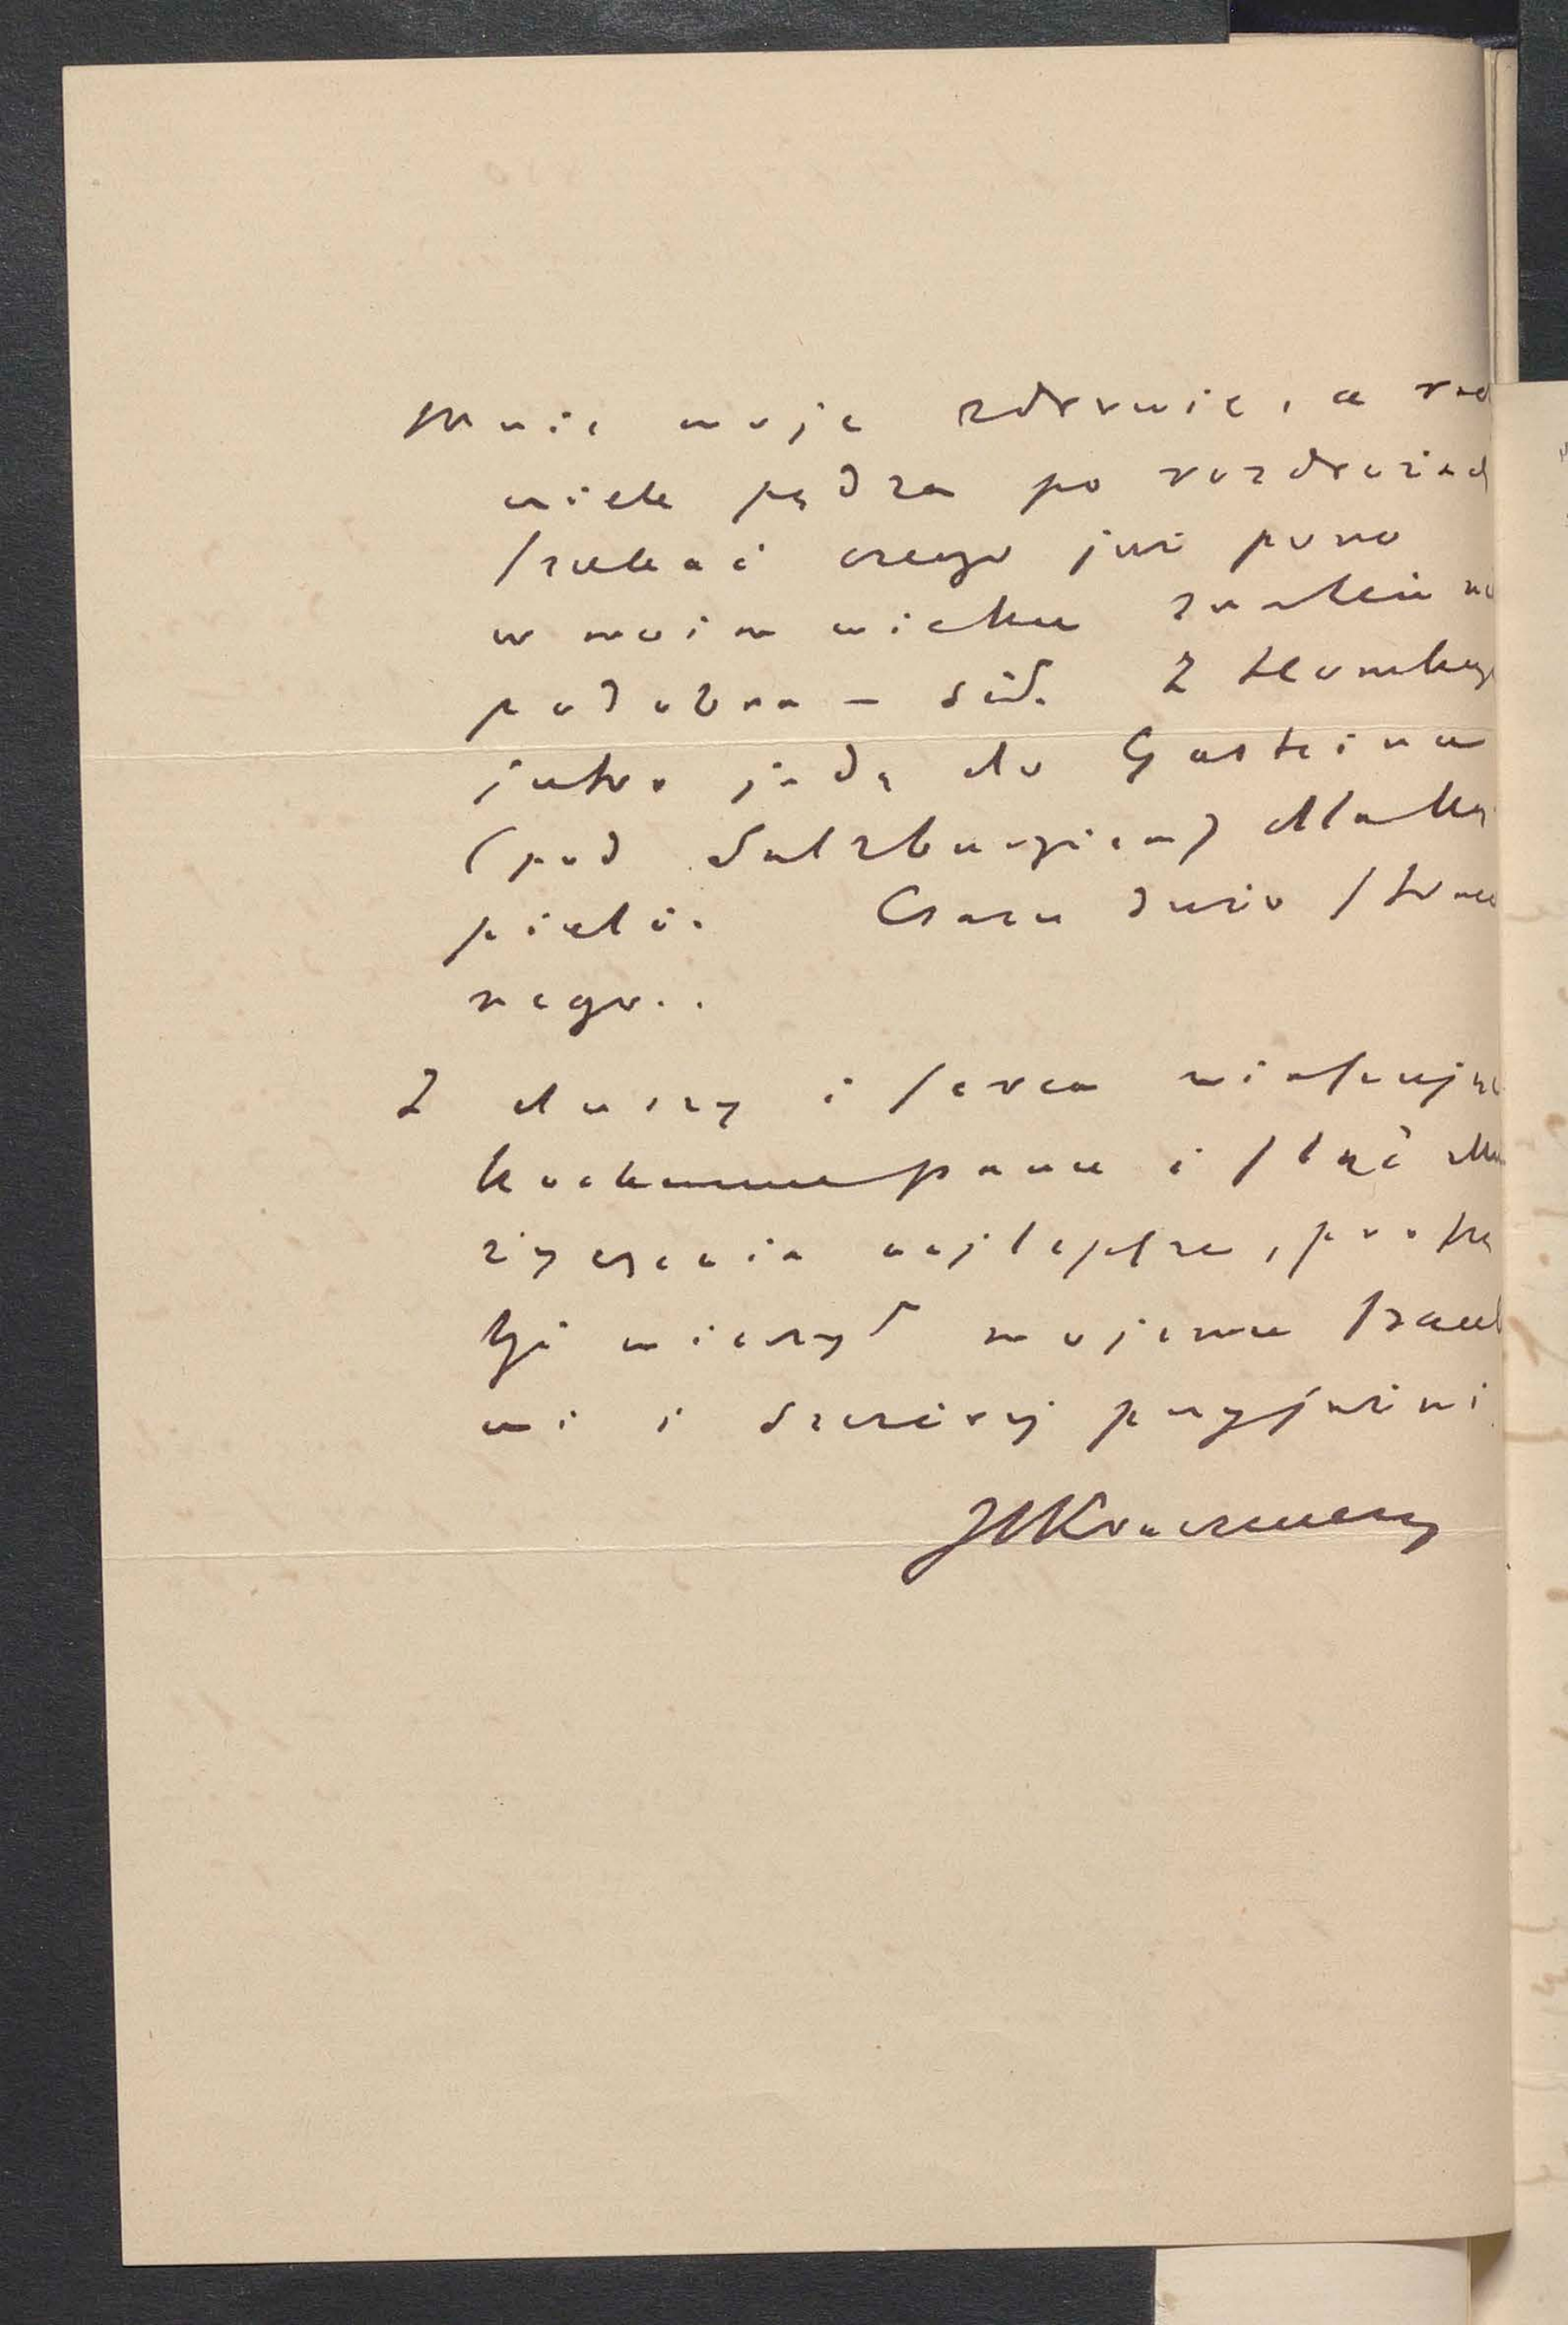 Mnie moje zdrowie, a ra
wiele pędza po rozdrożach
szukać czego już pono
w moim wieku znaleźć nie
podobna – sił. Z Homburga
jutro jadę do Gasteinu
(pod Salzburgiem) dla ką
pieli. Czasu dużo straco
nego..
Z duszy i serca winszując
kochanemu panu i śląc Mu
życzenia najlepsze, proszę
byś wierzył mojemu szacunko
wi i szczerej przyjaźni
JIKraszewski